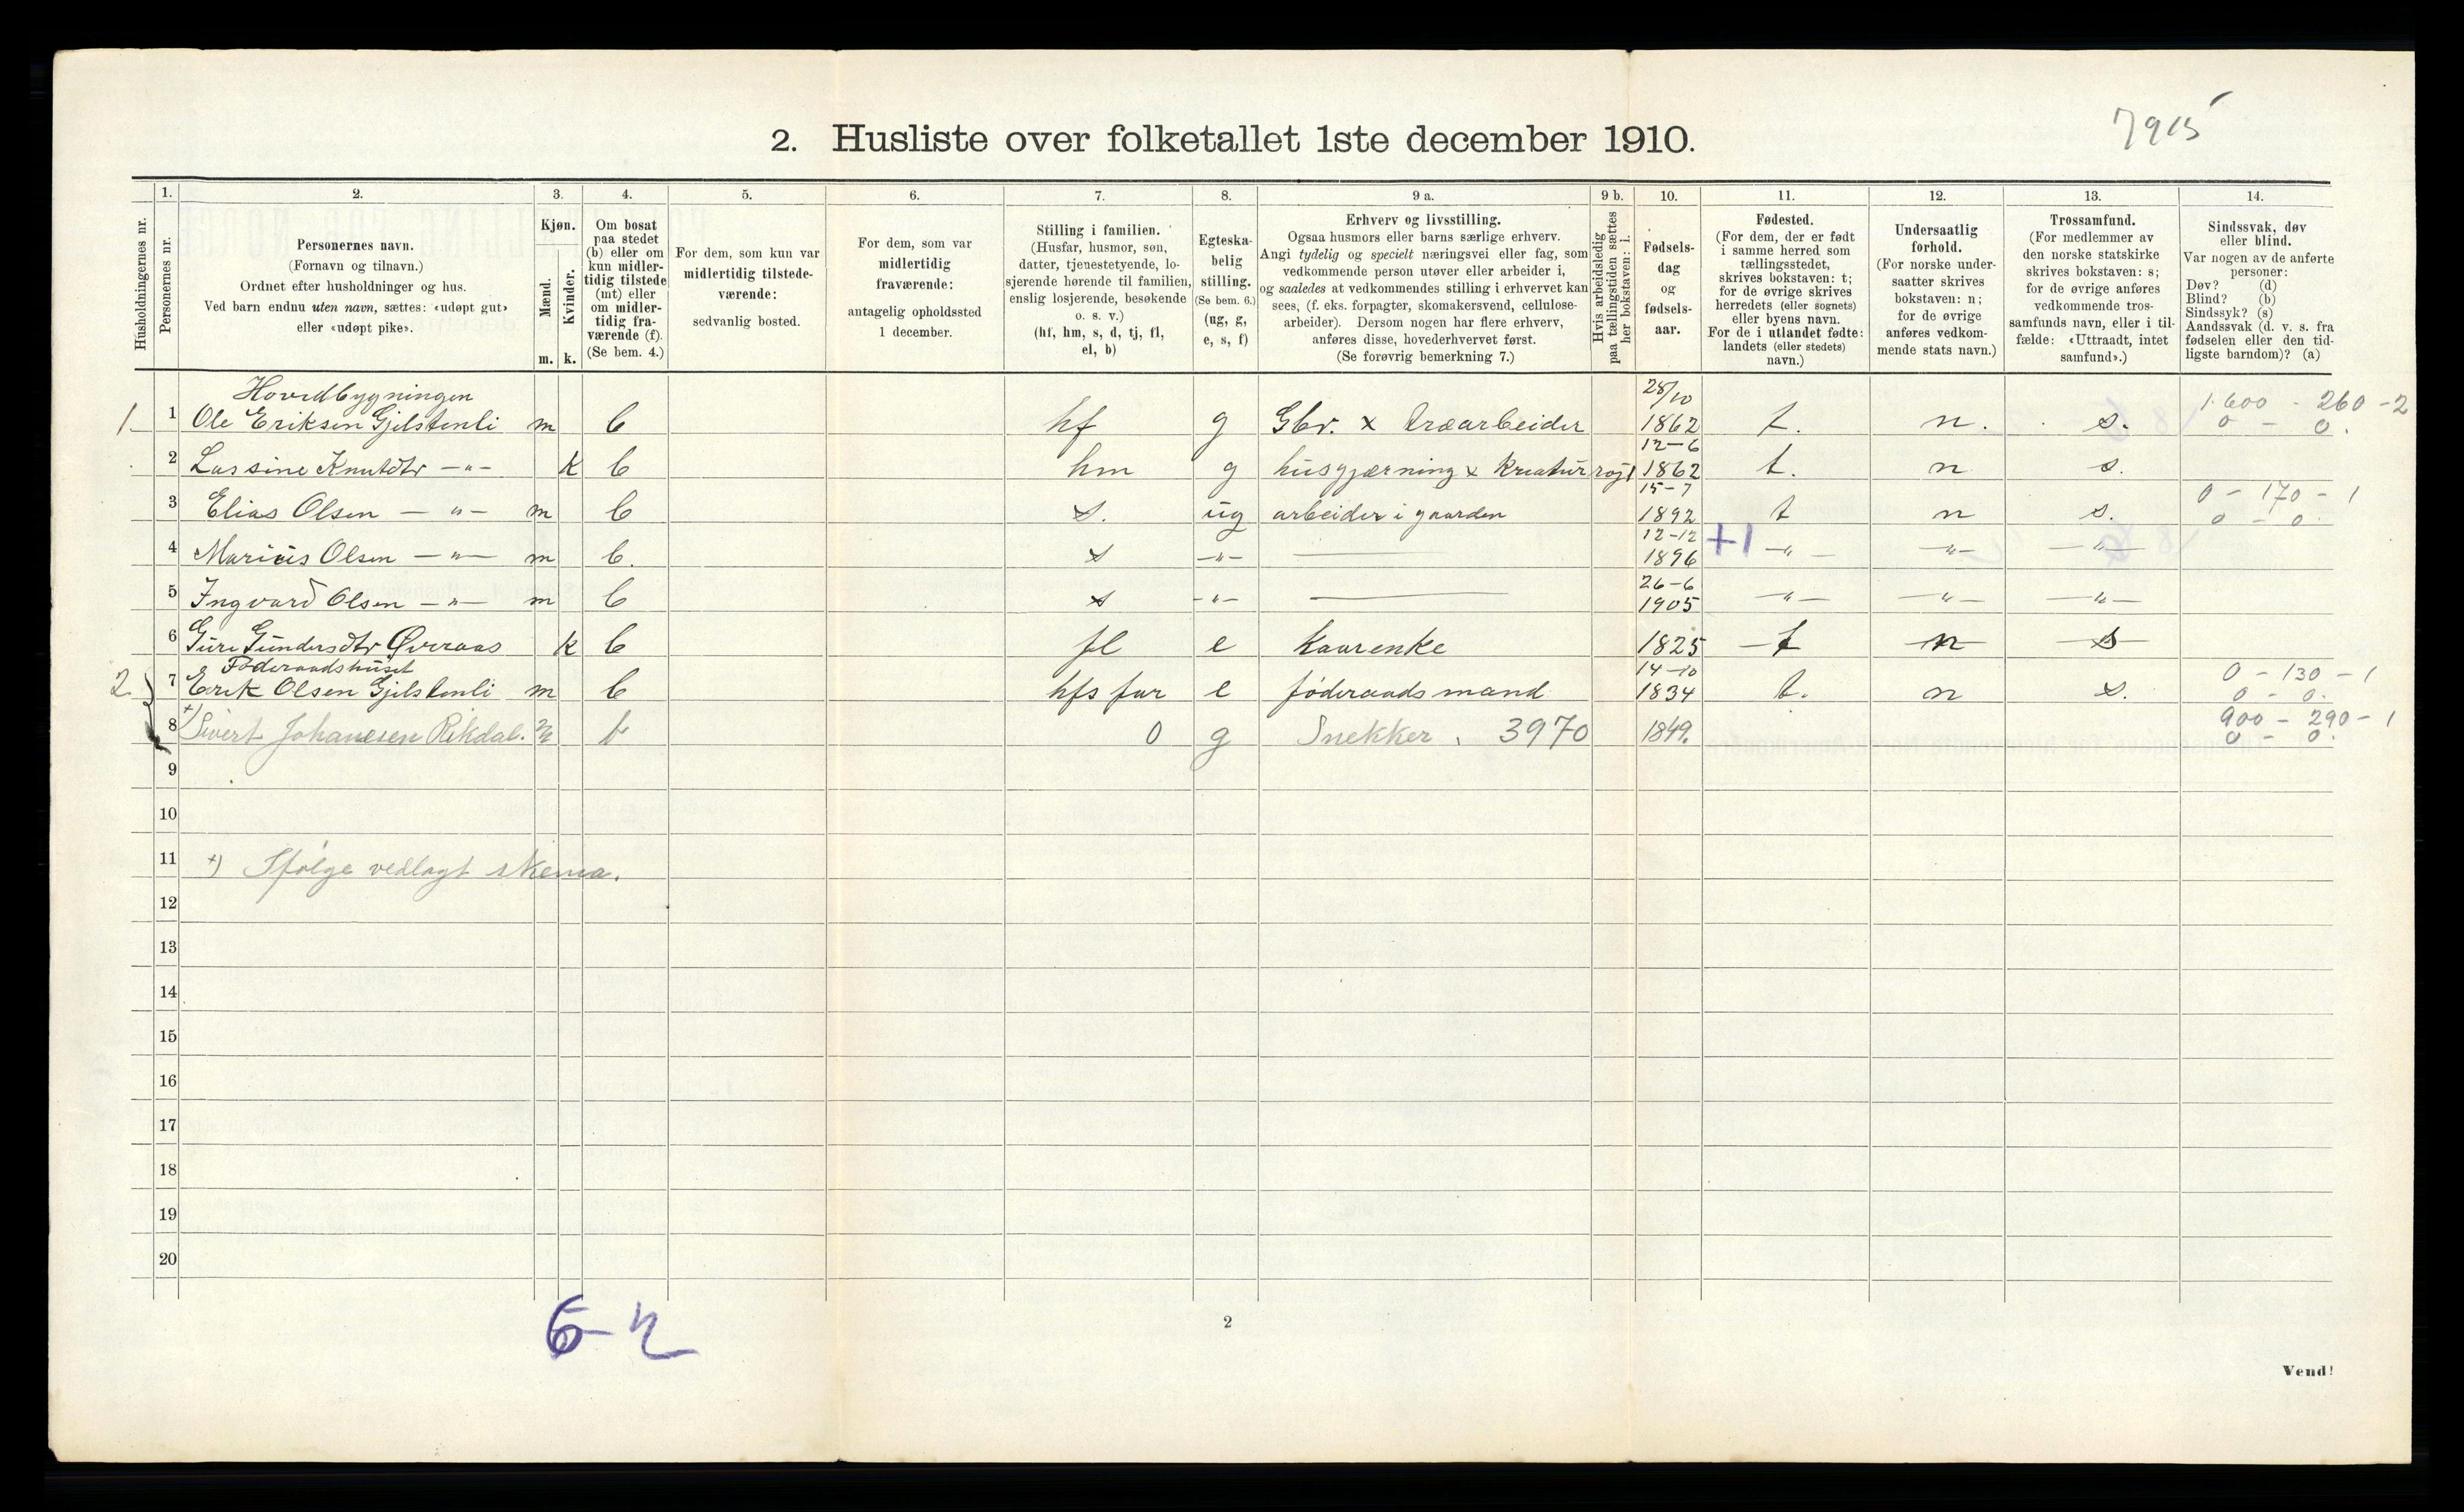 7915
2. Husliste over folketallet 1ste december 1910.
Husholdningernes nr.
1. Personernes nr.
2. Personernes navn.
(Fornavn og tilnavn.)
Ordnet efter husholdninger og hus.
Ved barn endnu uten navn, sættes: «udøpt gut»
eller «udøpt pike».
3. Kjøn.
Mænd. m.
Kvinder. k.
4. Om bosat
paa stedet
(b) eller om
kun midler-
tidig tilstede
(mt) eller
om midler-
tidig fra-
værende (f).
(Se bem. 4.)
5. For dem, som kun var
midlertidig tilstede-
værende:
sedvanlig bosted.
6. For dem, som var
midlertidig
fraværende:
antagelig opholdssted
1 december.
7. Stilling i familien.
(Husfar, husmor, søn,
datter, tjenestetyende, lo-
sjerende hørende til familien,
enslig losjerende, besøkende
o. s. v.)
(hf, hm, s, d, tj, fl,
el, b)
8. Egteska-
belig
stilling.
(Se bem. 6.)
(ug, g,
e, s, f)
9 a. Erhverv og livsstilling.
Ogsaa husmors eller barns særlige erhverv.
Angi tydelig og specielt næringsvei eller fag, som
vedkommende person utøver eller arbeider i,
og saaledes at vedkommendes stilling i erhvervet kan
sees, (f. eks. forpagter, skomakersvend, cellulose-
arbeider). Dersom nogen har flere erhverv,
anføres disse, hovederhvervet først.
(Se forøvrig bemerkning 7.)
9 b. Hvis arbeidsledig
paa tællingstiden sættes
her bokstaven: l.
10. Fødsels-
dag
og
fødsels-
aar.
11. Fødested.
(For dem, der er født
i samme herred som
tællingsstedet,
skrives bokstaven: t;
for de øvrige skrives
herredets (eller sognets)
eller byens navn.
For de i utlandet fødte:
landets (eller stedets)
navn.)
12. Undersaatlig
forhold.
(For norske under-
saatter skrives
bokstaven: n;
for de øvrige
anføres vedkom-
mende stats navn.)
13. Trossamfund.
(For medlemmer av
den norske statskirke
skrives bokstaven: s;
for de øvrige anføres
vedkommende tros-
samfunds navn, eller i til-
fælde: «Uttraadt, intet
samfund».)
14. Sindssvak, døv
eller blind.
Var nogen av de anførte
personer:
Døv? (d)
Blind? (b)
Sindssyk? (s)
Aandssvak (d. v. s. fra
fødselen eller den tid-
ligste barndom)? (a)
Hovedbygningen 28/10 1600 - 260 - 2
1 1 Ole Eriksen Gjelstenli m b hf g Gbr. x træarbeider 1862 t. n. s. 0 - 0.
12-6
2 Lassine Knutdtr -"- k b hm g husgjærning x Kreaturrøjt 1862 t. n s.
15-7 0 - 170 - 1
3 Elias Olsen -"- m b s. ug arbeider i gaarden 1892 t n s. 0 - 0.
12-12
4 Marius Olsen -"- m b. s -"- 1896 +1 -"- -"- -"-
26-6
5 Ingvard Olsen -"- m b s -"- 1905 -"- -"- -"-
6 Guri Gundersdtr Øveraas k b fl e kaarenke 1825 t n s
Føderaadshuset 14-10 0 - 130 - 1
2 7 Erik Olsen Gjelstenli m b hfs far e føderaadsmand 1834 t. n s. 0 - 0.
900 - 290 - 1
8 +) Sivert Johanesen Rekdal. m b 0 g Snekker. 3970 1849. 0 - 0.
9
10
11 +) Ifølge vedlagt skema.
12
13
14
15
16
17
18
19
20
6-2
2
Vend!